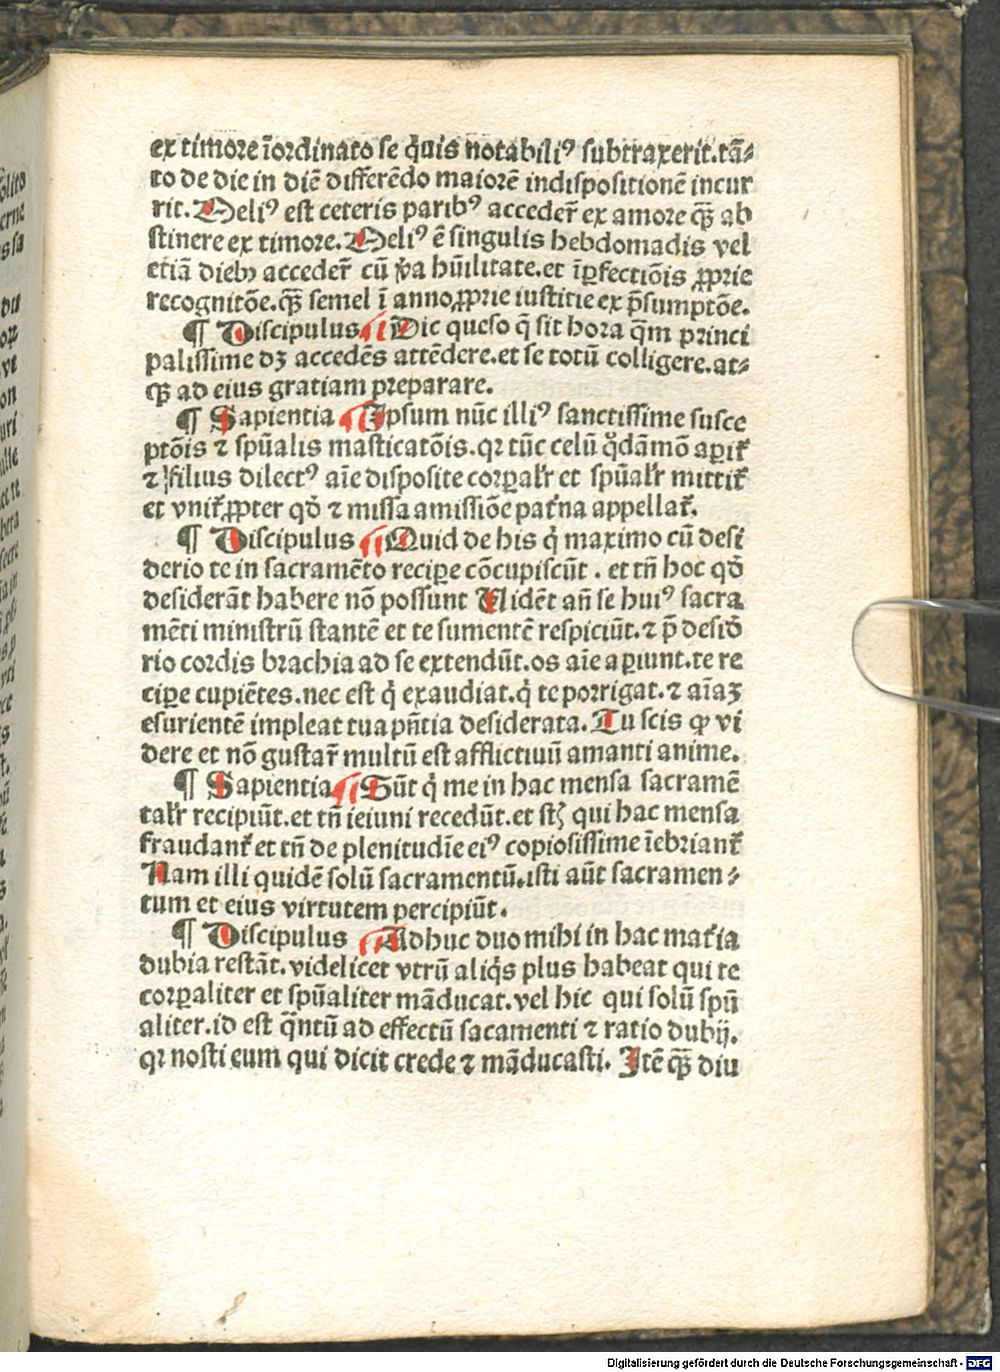 ex timore īordinato se q̇uis notabiliꝰ subtraxerit.tā⸗
to de die in diē differēdo maiorē indispositionē incur
rit. Meliꝰ est ceteris paribꝰ acceder̄ ex amore qȝ̄ ab
stinere ex timore. Meliꝰ ē singulis hebdomadis vel
etiā diebꝫ acceder̄ cū v̓a hūilitate.et īꝑfectiōis ꝓprie
recognitōe.qȝ̄ semel ī anno,ꝓprie iustitie ex p̄sumptōe.
¶ Discipulus ¶ Dic queso q̄ sit hora q̄m princi
palissime dꝫ accedēs attēdere.et se totū colligere.at⸗
qȝ̄ ad eius gratiam preparare.
¶ Sapientia ¶ Ipsum nūc illiꝰ sanctissime susce
ptōis ⁊ spūalis masticatōis.qꝛ tūc celū q̊dāmō aꝑit᷑
⁊ filius dilectꝰ aīe disposite corꝑalr̄ et spūalr̄ mittit᷑
et vnit᷑.ꝓpter qḋ ⁊ missa a missiōe pat᷑na appellat᷑.
¶ Discipulus ¶ Quid de his q̇ maximo cū desi
derio te in sacramēto reciꝑe cōcupiscūt . et tn̄ hoc qḋ
desiderāt habere nō possunt Uidēt an̄ se huiꝰ sacra
mēti ministrū stantē et te sumentē respiciūt.⁊ p̄ desid̓
rio cordis brachia ad se extendūt.os aīe aꝑiunt.te re
ciꝑe cupiētes.nec est q̇ exaudiat.q̇ te porrigat.⁊ aīaꝫ
esurientē impleat tua pn̄tia desiderata. Tu scis ꝙ vi
dere et nō gustar̄ multū est afflictiuū amanti anime.
¶ Sapientia ¶ Sūt q̇ me in hac mensa sacramē
talr̄ recipiūt.et tn̄ ieiuni recedūt.et st̄ qui hac mensa
fraudant᷑ et tn̄ de plenitudīe eiꝰ copiosissime īebriant᷑
Nam illi quidē solū sacramentū.isti aūt sacramen⸗
tum et eius virtutem percipiūt.
¶ Discipulus ¶ Adhuc duo mihi in hac mat᷑ia
dubia restāt.videlicet vtrū aliq̇s plus habeat qui te
corꝑaliter et spūaliter māducat.vel hic qui solū spū
aliter.id est q̄ntū ad effectū sacamenti ⁊ ratio dubij.
qꝛ nosti eum qui dicit crede ⁊ māducasti. Itē qȝ̄ diu
Digitalisierung gefördert durch die Deutsche Forschungsgemeinschaft - DFG